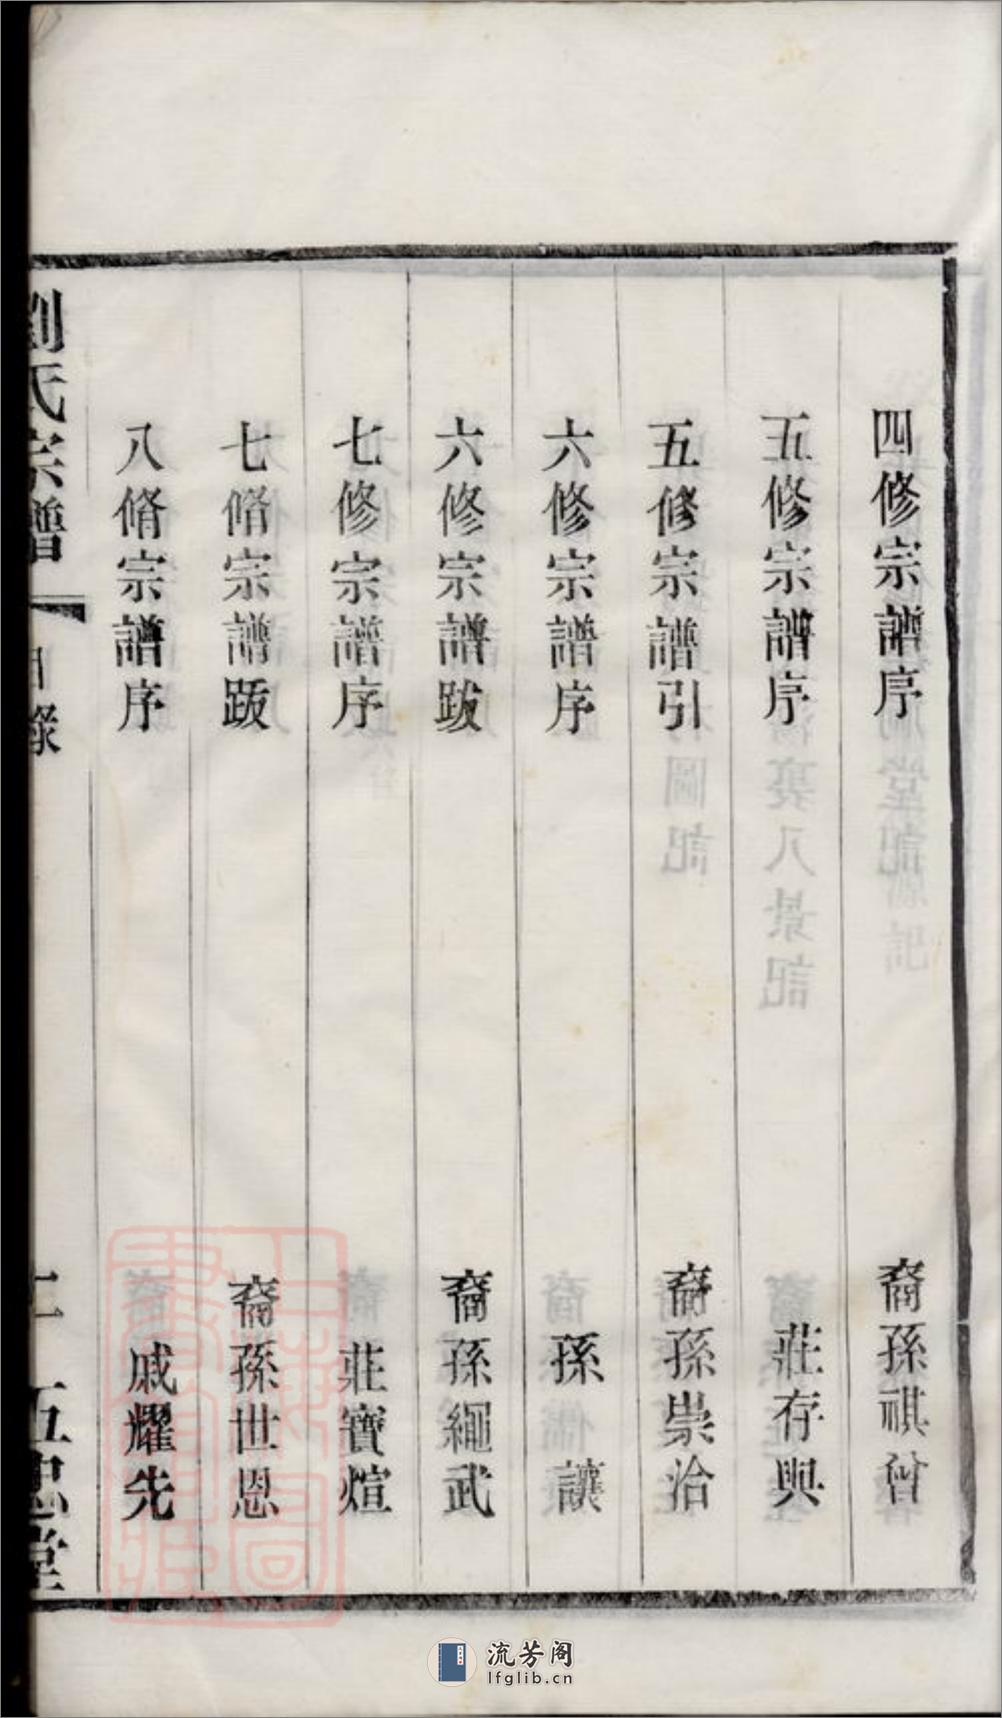 四修宗譜序　裔孫祺曾
五修宗譜序　莊存與
五修宗譜引　裔孫崇洽
六修宗譜序　孫讓
六修宗譜跋　裔孫繩武
七修宗譜序　莊寶煊
七脩宗譜跋　裔孫世恩
八脩宗譜序　戚耀先
劉氏宗譜　目錄　二　五忠堂
流芳阁
lfglib.cn